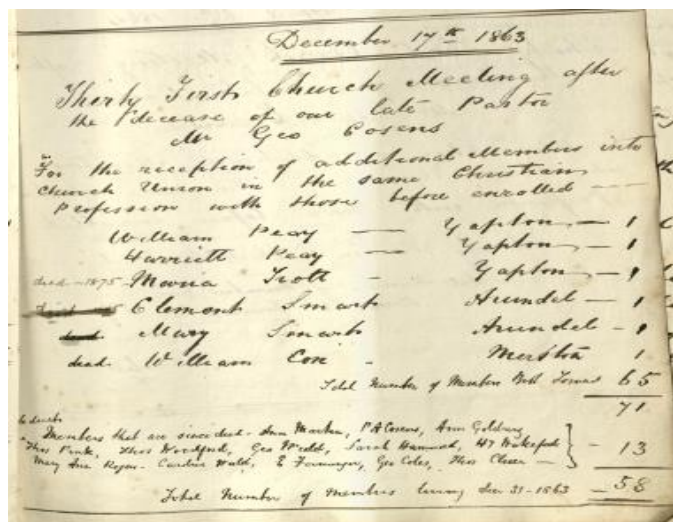 December 17th 1863
Thirty First Church Meeting after
the decease of our late Pastor
Mr Geo Cosens
For the reception of additional Members into
Church Union in the same Christian
Profession with those before enrolled
William Peay — Yapton — 1
Harriett Peay — Yapton — 1
died - 1875 - Maria Trott - Yapton - 1
Clement Smart Arundel - 1
dead Mary Smart Arundel - 1
dead William Cox - Merston 1
Total Number of Members Bot Forward 65
71
Members that are since died - Ann Marten, P A Cosens, Ann Goldring
Thos Pink, Thos Woodford, Geo Webb, Sarah Hammond, - 13
Mary Ann Roger - Caroline Wald, E Farmager, Geo Coles, Thos Cheer —
Total Number of Members living Decr 31 - 1863 - 58